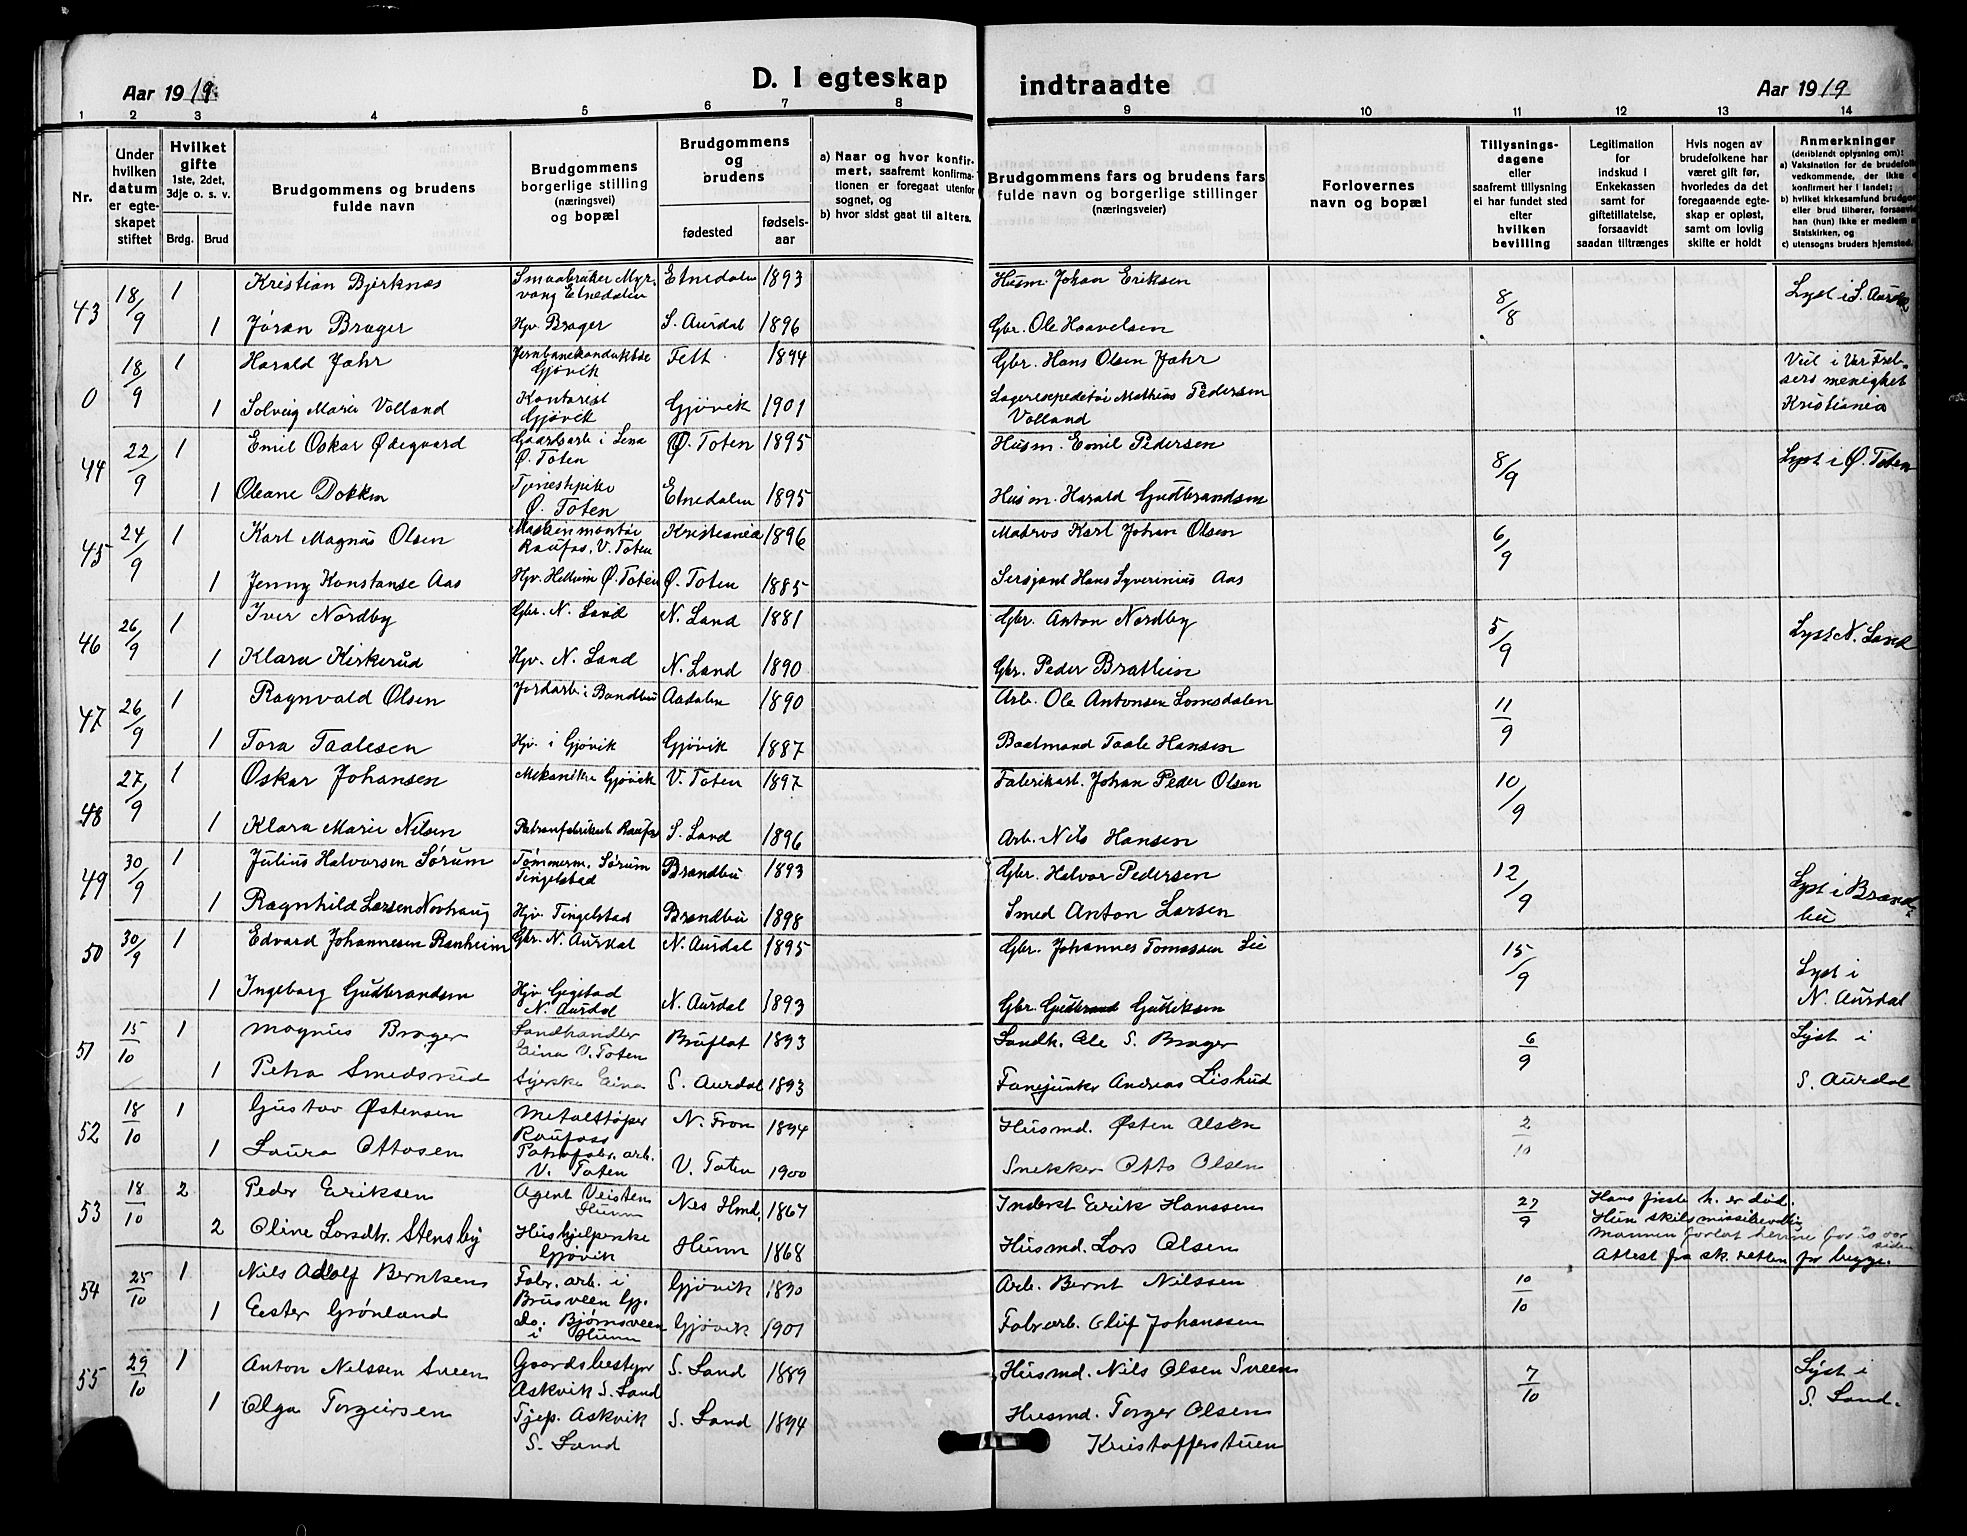 D. I egteskap indtraadte
Aar 1919.
Aar 1919
1 2 3 4 5 6 7 8 9 10 11 12 13 14
Nr.
Under hvilken datum er egteskapet stiftet
Hvilket gifte 1ste, 2det, 3dje o. s. v.
Brdg. Brud
Brudgommens og brudens fulde navn
Brudgommens borgerlige stilling (næringsvei) og bopæl
Brudgommens og brudens
fødested
fødselsaar
a) Naar og hvor konfirmert, saafremt konfirmationen er foregaat utenfor sognet, og
b) hvor sidst gaat til alters.
Brudgommens fars og brudens fars fulde navn og borgerlige stillinger (næringsveier)
Forlovernes navn og bopæl
Tillysningsdagene eller saafremt tillysning ei har fundet sted efter hvilken bevilling
Legitimation for indskud i Enkekassen samt for giftetillatelse, forsaavidt saadan tiltrænges
Hvis nogen av brudefolkene har været gift før, hvorledes da det foregaaende egteskap er opløst, samt om lovlig skifte er holdt
Anmerkninger
(deriblandt oplysning om):
a) Vaksination for de brudefolk vedkommende, der ikke konfirmert her i landet;
b) hvilket kirkesamfund brudgom eller brud tilhører, forsaavidt han (hun) ikke er medlem Statskirken, og
c) utensogns bruders hjemsted.
43 18/9 1 Kristian Bjerknæs Smaabruker Myrvang Etnedalen Etnedalen 1893 Husm. Johan Eriksen 8/8 Lyst i S. Aurdal
1 Jøran Brager Hjv. Brager S. Aurdal 1896 Gbr. Ole Haavelsen
0 18/9 1 Harald Jahr Jernbanekonduktør Gjøvik Fett 1894 Gbr. Hans Olsen Jahr Viel i Vor Frelsers menighet Kristiania
1 Solveig Marie Volland Kontorist Gjøvik Gjøvik 1901 Lagerexpeditør Mathias Pedersen Volland
44 22/9 1 Emil Oskar Ødegaard Gaardsarb i Lena Ø. Toten Ø. Toten 1895 Husm. Emil Pedersen 8/9 Lyst i Ø. Toten
1 Oleane Dokken Tjenestepike Ø. Toten Etnedalen 1895 Husm. Harald Gudbrandsen
45 24/9 1 Karl Magnus Olsen Maskinmontør Raufos, V. Toten Kristiania 1896 Matros Karl Johan Olsen 6/9
1 Jenny Konstanse Aas Hjv. Hellum Ø. Toten Ø. Toten 1885 Sersjant Hans Syverinius Aas
46 26/9 1 Iver Nordby Gbr. N. Land N. Land 1881 Gbr. Anton Nordby 5/9 Lyst N. Land
1 Klara Kirkerud Hjv. N. Land N. Land 1890 Gbr. Peder Brathein
47 26/9 1 Ragnvald Olsen Jordarb i Brandbu Aadalen 1890 Arb. Ole Antonsen Lomsdalen 11/9
1 Tora Taalesen Hjv. i Gjøvik Gjøvik 1887 Baatmand Taale Hansen
48 27/9 1 Oskar Johansen Mekaniker Gjøvik V. Toten 1897 Fabrikarb. Johan Peder Olsen 10/9
1 Klara Marie Nilsen S. Land 1896 Arb. Nils Hansen
49 30/9 1 Julius Halvorsen Sørum Tømmerm. Sørum Tingelstad Brandbu 1893 Gbr. Halvor Pedersen 12/9 Lyst i Brandbu
1 Ragnhild Larsen Norhaug Hjv. Tingelstad Brandbu 1898 Smed Anton Larsen
50 30/9 1 Edvard Johannesen Ranheim Gbr. N. Aurdal N. Aurdal 1895 Gbr. Johannes Tomassen Lie 15/9 Lyst i N. Aurdal
1 Ingeborg Gudbrandsen Hjv N. Aurdal N. Aurdal 1893 Gbr. Gudbrand Gulliksen
51 15/10 1 Magnus Brager Landhandler Eina V. Toten Bruflat 1893 Landh. Ole S. Brager 6/9 Lyst i S. Aurdal
1 Petra Smedsrud Syerske Eina S. Aurdal 1893 Fanejunker Andreas
52 18/10 1 Gustav Østensen Metalstøper Raufoss N. Fron 1894 Husmd. Østen Olsen 2/10
1 Laura Ottosen Patronfabr. arb. V. Toten V. Toten 1900 Snekker Otto Olsen
53 18/10 2 Peder Eriksen Agent Veisten Hunn Nes Hmd. 1867 Inderst Erik Hanssen 27/9 Hans første h. er død. Hun skilsmissebevilling mannen forlot henne for 20 aar siden Attest fra sk. retten for begge.
2 Oline Larsdtr. Stensby Hushjelperske Gjøvik Hunn 1868 Husmd. Lars Olsen
54 25/10 1 Nils Adolf Berntsen Fabr. arb. i Brusveen Gj. Gjøvik 1890 Arb. Bernt Nilssen 10/10
1 Ester Grønland Do. Bjørnsveen i Hunn Gjøvik 1901 Fabr arb. Oluf Johanssen
55 29/10 1 Anton Nilssen Sveen Gaardsbestyrer Askvik S. Land S. Land 1889 Husmd. Nils Olsen Sveen 7/10 Lyst i S. Land.
1 Olga Torgersen Tjep. Askvik S. Land S. Land 1894 Husmd. Torger Olsen Kristofferstuen